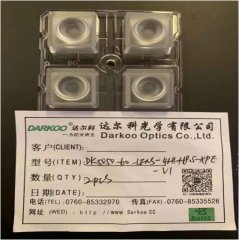 DARKOO 达尔科 达尔科光学有限公司
—为阳光而生 Darkoo Optics Co., Ltd.
客户(CLIENT):
型号(ITEM) DK5050-60-LENS-4H1-
-V1
数量(QTY) 2PCS
日期(DATE):
电话(TEL): 0760-85332970 传真(FAX) 0760-85335526
网址(WED): http://www.Darkoo.CC
RoHS